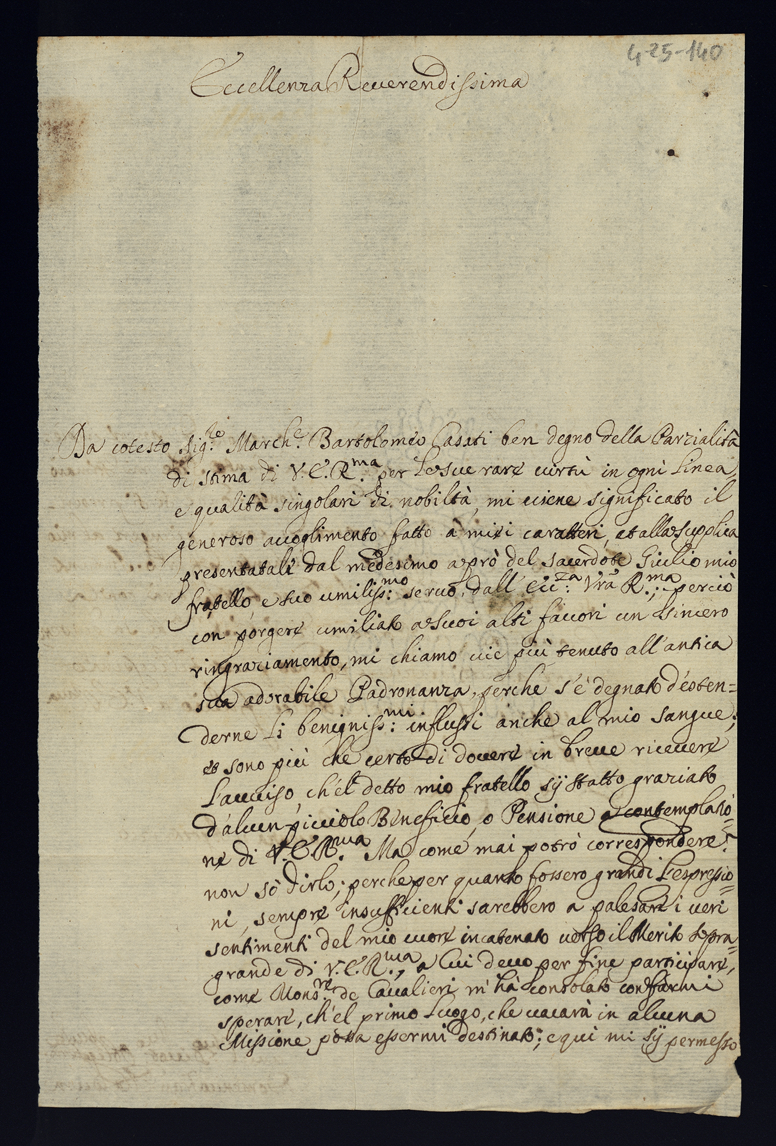 4-25-140
Eccellenza Reverendissima
Da cotesto Sig.re March.e Bartolomeo Casati ben degno della Parzialità
di stima di V.E.R.ma per le sue rare virtù in ogni Linea,
e qualità singolari di nobiltà, mi viene significato il
generoso accoglimento fatto à miei caratteri, et alla supplica
presentatali dal medesimo a prò del sacerdote Giulio mio
fratello, e suo umiliss:mo servo, dall' Ecc:za Vrã R.ma; perciò
con porgere umiliato a suoi alti favori un sincero
ringraziamento, mi chiamo vie più tenuto all'antica
sua adorabile Padronanza, perche s'è degnato d'esten=
derne li beniguiss:mi influssi anche al mio sangue;
e sono più che certo di dovere in breve ricevere
l'avviso ch'el detto mio fratello sÿ statto graziato
d'alcun picciolo Beneficio, o Pensione a contemplatio=
ne di V.E.R.ma Ma come mai potrò correspondere?
non sò dirlo; perche per quanto fossero grandi l'espressio=
ni, sempre insufficienti sarebbero a palesare i veri
sentimenti del mio cuore incatenato verso il Merito sopra=
grande di V.E.R.ma, a Cui devo per fine participare,
come Mons.re de Cavalieri m'hà consolato con farmi
sperare, ch'el primo Luogo, che vacarà in alcuna
Missione possa essermi destinato; e qui mi sÿ permesso